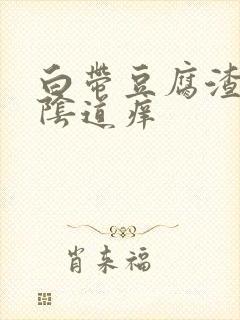 白带豆腐渣
陰道痒
肖来福